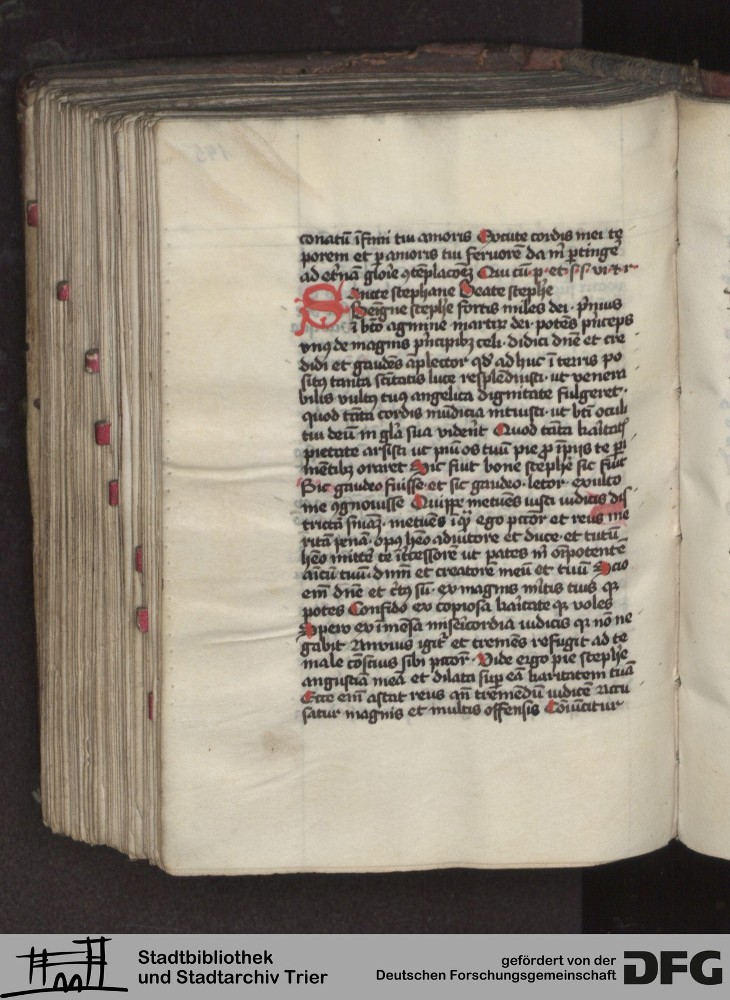 conatū īfimi tui amoris Excute cordis mei te
porem et p amoris tui feruorē da m̄ ptinge
ad et̄nā glōie ꝯtēplacōeȝ Qui cū p · et · s · s · vi · t · r ·
Sancte stephane Beate stephe
Benigne stephe fortis miles dei · p̄mus
ī bt̄o agmine martirꝝ dei · potēs pnceps
vnꝰ de magnis pncipibꝫ celi · didici dnē et cre
didi et gaudēs āplector qd̓ adhuc ī terris po
sitꝰ tanta sc̄itatis luce resplēduisti · ut venera
bilis vultꝰ tuꝰ angelica dignitate fulgeret ·
quod tāta cordis mūdicia intuisti · ut bt̄i oculi
tui deū in gl̄a sua viderēt Quod tāta kaīitatꝭ
pietate arsisti ut piū os tuū pie p īpijs te pi
mētibꝫ oraret Sic fuit bone stephe sic fuit
Sic gaudeo fuisse · et sic gaudeo · letor · exulto
me ꝯgnouisse Quippe metuēs iusti iudicis dis
trictā sniāȝ · metuēs īqᷓ ego pctor et reus me
ritā penā · opꝰ heo adiutore et duce · et tutū
heo mittē te īt̄cessorē ut pates m̄ om̄potente
amicū tuū · dnm̄ et creatorē meū et tuū Scio
em̄ dnē et c̄tꝰ sū · ex magnis mītis tuis qꝛ
potes Confido ex copiosa kaītate qꝛ voles
Spero ex īmēsa misericordia iudicis qꝛ nō ne
gabit Anxius igit̄ et tremēs refugit ad te
male cōscius sibi pctor · Vide ergo pie stephe
angustiā meā et dilata sup eā karitatem tuā
Ecce em̄ astat reus an̄ tremēdū iudicē accu
satur magnis et multis offensis Cōuīcitur
Stadtbibliothek
und Stadtarchiv Trier
gefördert von der
Deutschen Forschungsgemeinschaft
DFG